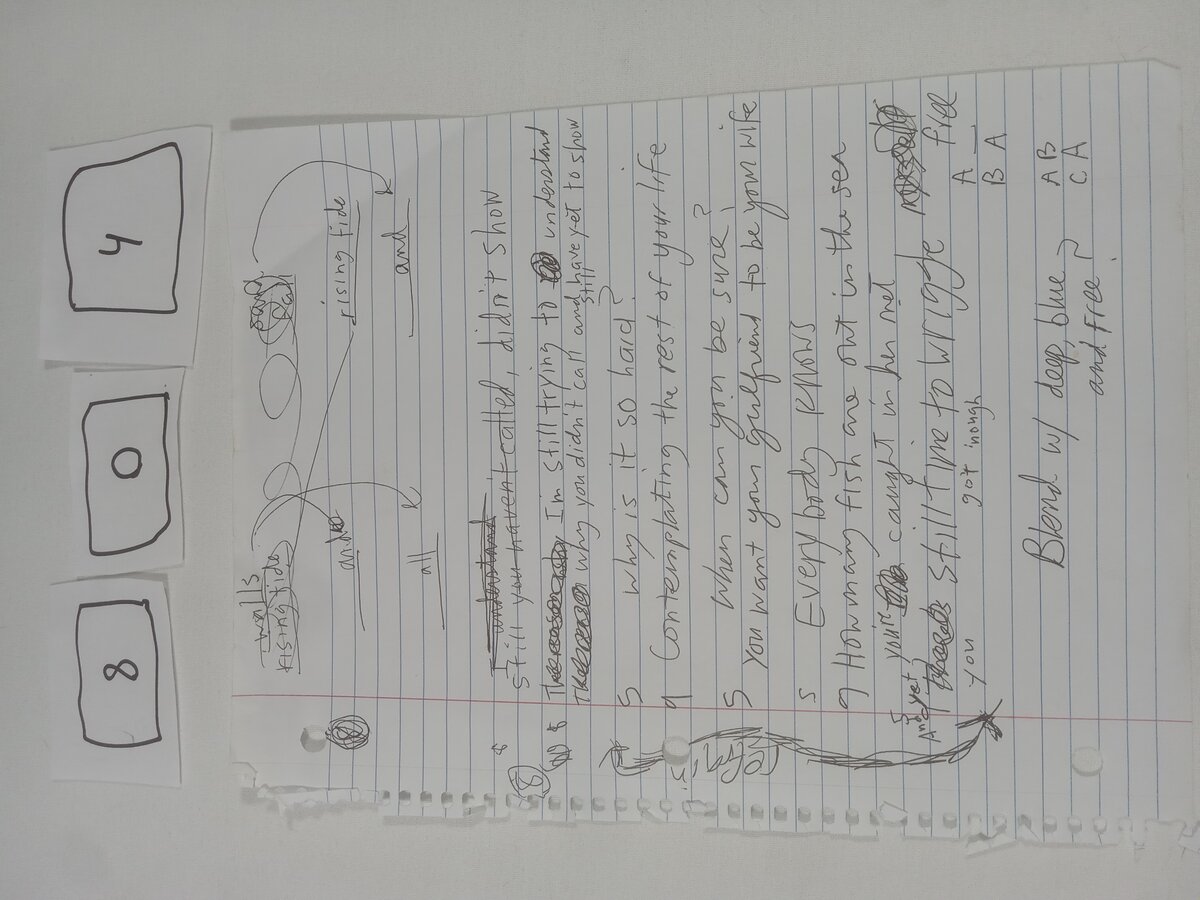 8 0 4
walls
rising tide
and
call
and rising tide
all and
understand
still you haven't called, didn't show
8
8 The reason why I'm still trying to understand
The reason why you didn't call and have yet to show
still
5 Why is it so hard?
9 Contemplating the rest of your life
When can you be sure?
5 You want your gulfriend to be your wife
5 Every body knows
9 How many fish are out in the sea
5 you're caught in her net
And yet still time to wriggle free
you got inough
A _
B A
Blend w/ deep, blue, A B
and free? C A